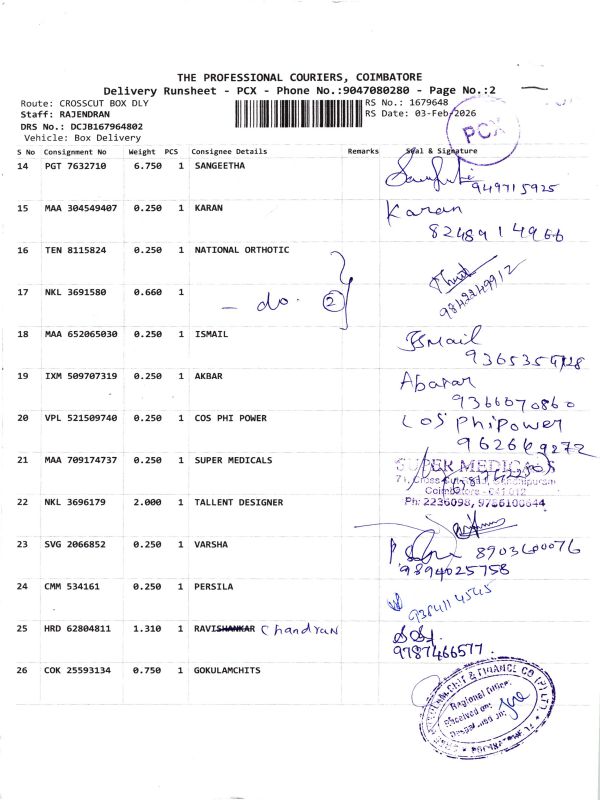 THE PROFESSIONAL COURIERS, COIMBATORE
Delivery Runsheet - PCX - Phone No.:9047080280 - Page No.:2
Route: CROSSCUT BOX DLY
RS No.: 1679648
Staff: RAJENDRAN
RS Date: 03-Feb-2026
DRS No.: DCJB167964802
PCX
Vehicle: Box Delivery
S No Consignment No Weight PCS Consignee Details Remarks Seal & Signature
14 PGT 7632710 6.750 1 SANGEETHA
949715925
15 MAA 304549407 0.250 1 KARAN Karan
8248914966
16 TEN 8115824 0.250 1 NATIONAL ORTHOTIC
9842249912
17 NKL 3691580 0.660 1
- do. 2
18 MAA 652065030 0.250 1 ISMAIL Ismail
19 IXM 509707319 0.250 1 AKBAR
9366070860
20 VPL 521509740 0.250 1 COS PHI POWER COS Phi Power
962669272
21 MAA 709174737 0.250 1 SUPER MEDICALS SUPER MEDICALS
Coimbatore - 641 012
Ph: 2236098, 9756100644
22 NKL 3696179 2.000 1 TALLENT DESIGNER
23 SVG 2066852 0.250 1 VARSHA 8903600076
9894025758
24 CMM 534161 0.250 1 PERSILA
9384114545
25 HRD 62804811 1.310 1 RAVISHANKAR Chandran
9787466577
26 COK 25593134 0.750 1 GOKULAMCHITS
CHIT & FINANCE CO (P) LTD.
Regional Office:
Received on: